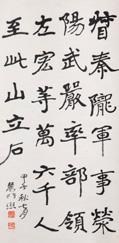 督秦隴軍事滎
陽武嚴率部領
左宏等萬六千人
至此山立石
甲子秋七月